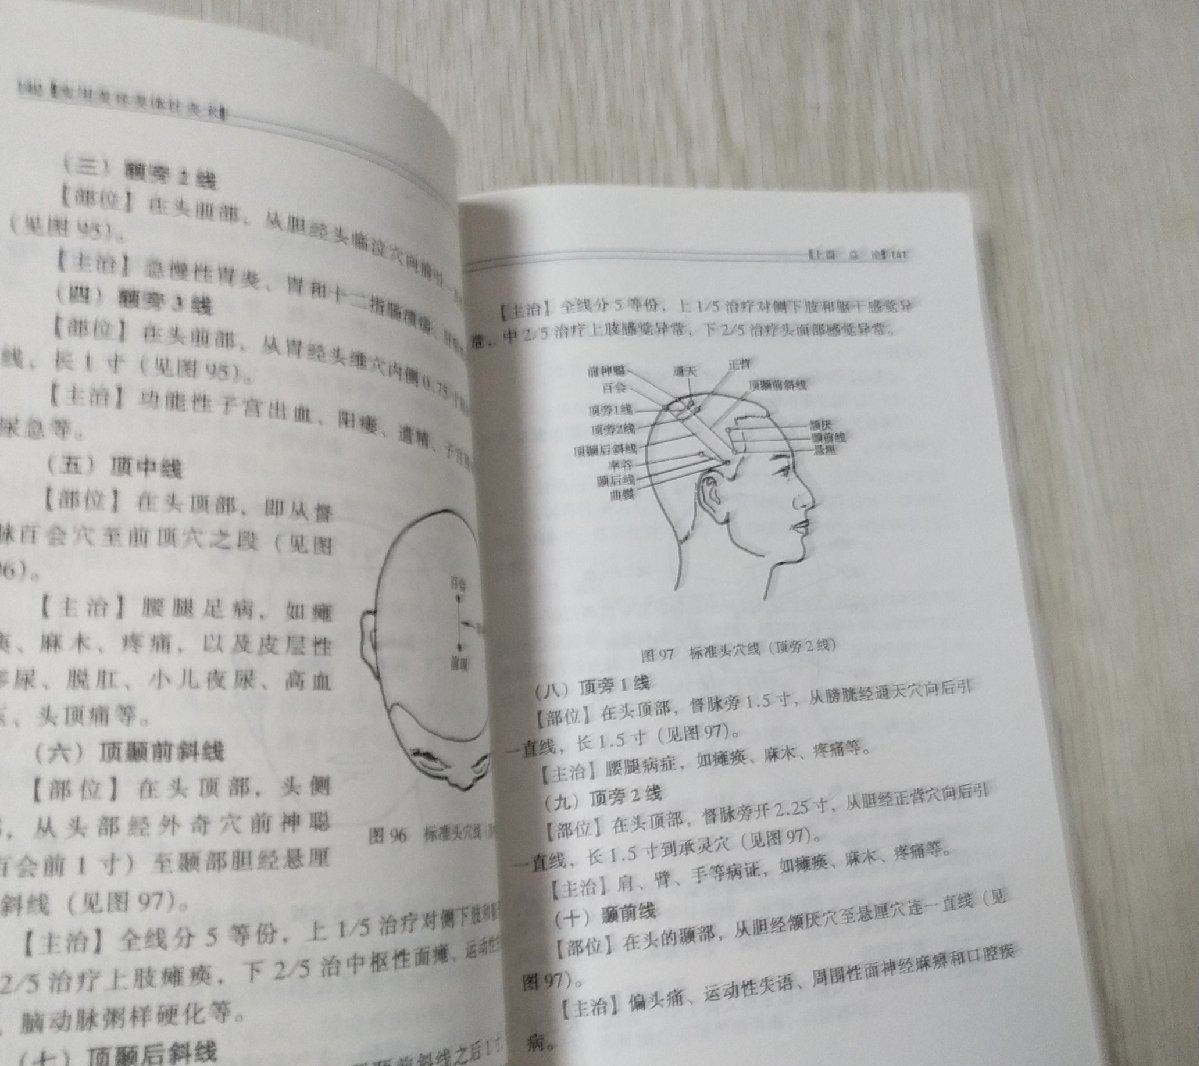 （三）颞旁2线
【部位】在头前部，从胆经头临泣穴向前引一
（见图95）。
【主治】急慢性胃炎、胃和十二指肠溃疡、
（四）额旁3线
【部位】在头前部，从胃经头维穴内侧0.75寸
线，长1寸（见图95）。
【主治】功能性子宫出血、阳痿、遗精、子宫
尿急等。
（五）顶中线
【部位】在头顶部，即从督
脉百会穴至前顶穴之段（见图
96）。
【主治】腰腿足病，如瘫
痪、麻木、疼痛，以及皮层性
多尿、脱肛、小儿夜尿、高血
压、头顶痛等。
（六）顶颞前斜线
【部位】在头顶部，头侧
部，从头部经外奇穴前神聪
百会前1寸）至颞部胆经悬厘
斜线（见图97）。
【主治】全线分5等份，上1/5治疗对侧下肢和
2/5治疗上肢瘫痪，下2/5治中枢性面瘫、运动性
、脑动脉粥样硬化等。
（七）顶颞后斜线
颞前斜线之后1寸
百会
前顶
图96 标准头穴线
上篇 总 论 141
【主治】全线分5等份，上1/5治疗对侧下肢和躯干感觉异
常，中2/5治疗上肢感觉异常，下2/5治疗头面部感觉异常。
前神聪
百会
顶旁1线
顶旁2线
顶颞后斜线
率谷
颞后线
曲鬓
通天
正营
顶颞前斜线
颔厌
颞前线
悬厘
图97 标准头穴线（顶旁2线）
（八）顶旁1线
【部位】在头顶部，督脉旁1.5寸，从膀胱经通天穴向后引
一直线，长1.5寸（见图97）。
【主治】腰腿病症，如瘫痪、麻木、疼痛等。
（九）顶旁2线
【部位】在头顶部，督脉旁开2.25寸，从胆经正营穴向后引
一直线，长1.5寸到承灵穴（见图97）。
【主治】肩、臂、手等病证，如瘫痪、麻木、疼痛等。
（十）颞前线
【部位】在头的颞部，从胆经颔厌穴至悬厘穴连一直线（见
图97）。
【主治】偏头痛、运动性失语、周围性面神经麻痹和口腔疾
病。